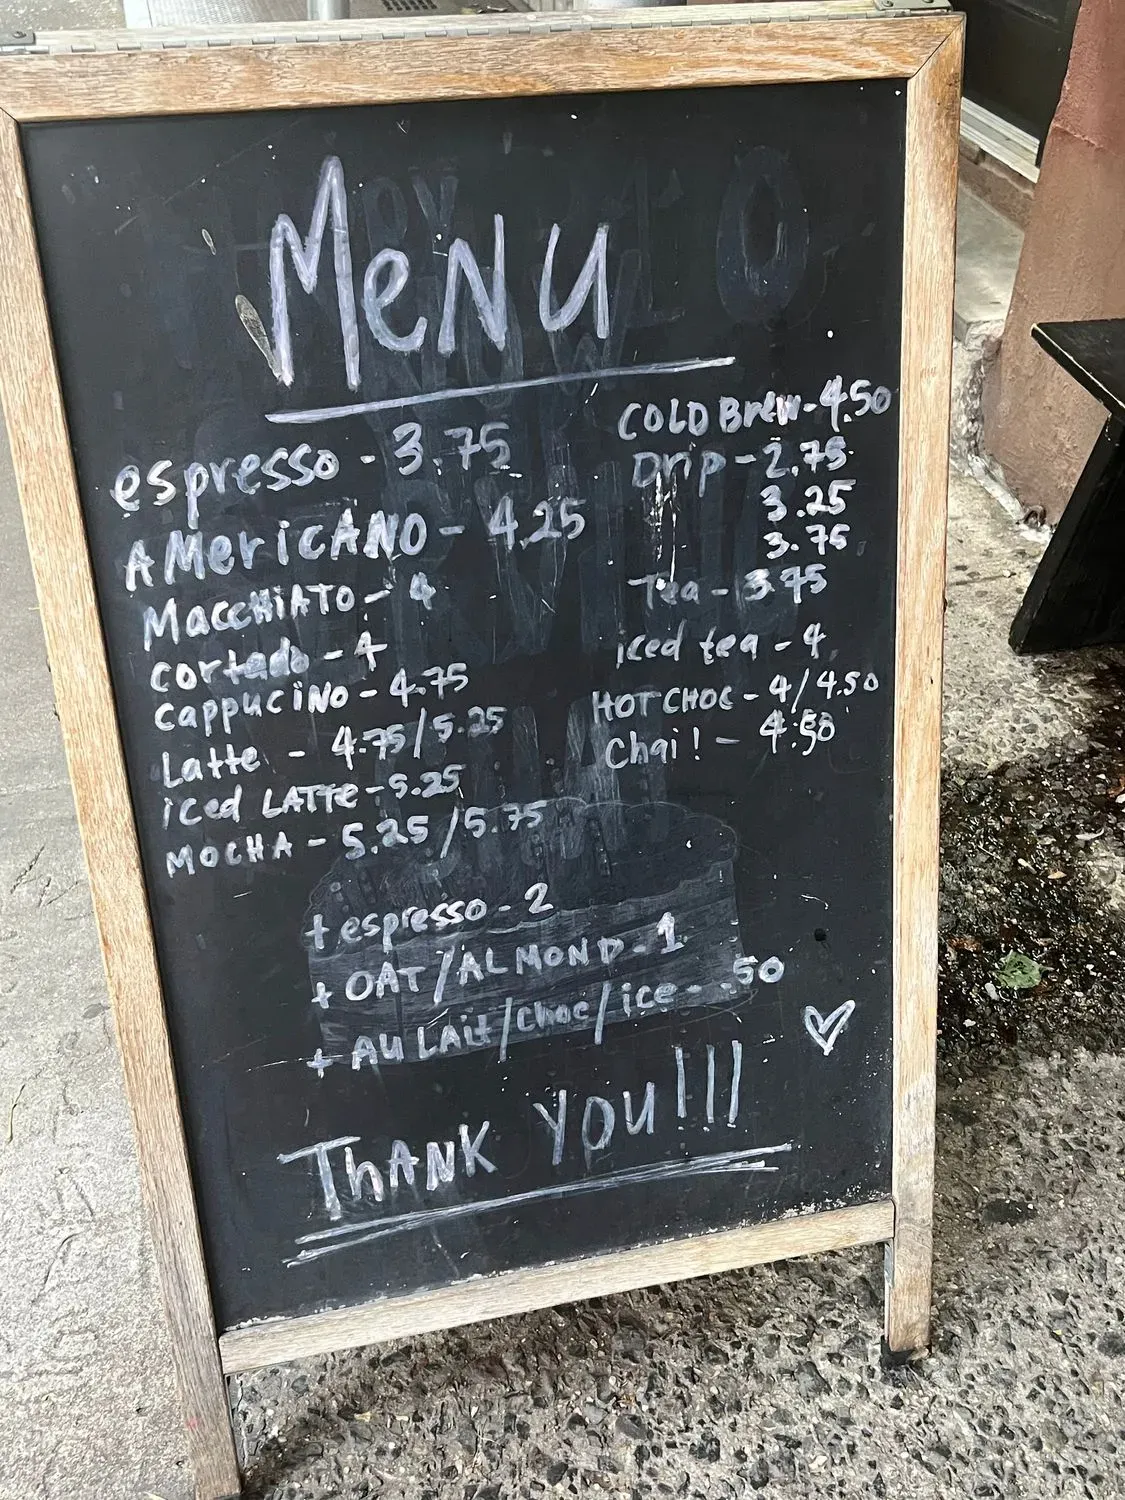 MeNU
espresso - 3.75
AMericANO - 4.25
MaccHiATO - 4
cortado - 4
cappuciNo - 4.75
Latte - 4.75/5.25
iced LATTe - 5.25
MOCHA - 5.25/5.75
COLD Brew - 4.50
Drip - 2.75
3.25
3.75
Tea - 3.75
iced tea - 4
HOT CHOC - 4/4.50
Chai! - 4.50
+ espresso - 2
+ OAT/ALMOND - 1
+ AU LAit/choc/ice - .50
ThANK YOU!!!